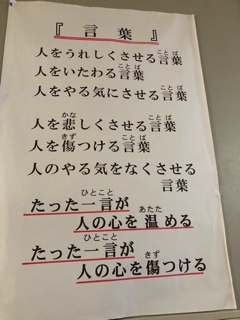 『言葉』
人をうれしくさせる言葉
人をいたわる言葉
人をやる気にさせる言葉
人を悲しくさせる言葉
人を傷つける言葉
人のやる気をなくさせる
言葉
たった一言が
人の心を温める
たった一言が
人の心を傷つける